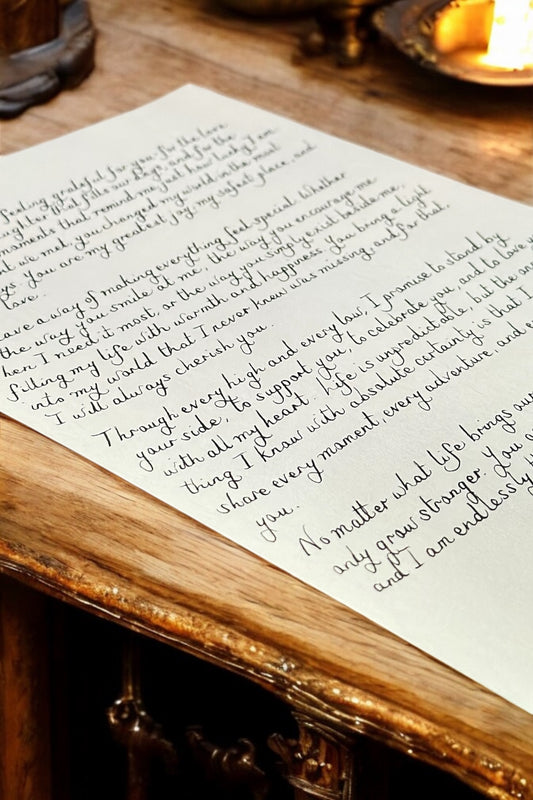 feeling grateful for you, for the love
that fills our days, and for the
moments that remind me just how lucky I am
we met, you changed my world in the most
you are my greatest joy, my safest place, and
love.
have a way of making everything feel special. Whether
the way you smile at me, the way you encourage me
when I need it most, or the way you simply exist beside me,
filling my life with warmth and happiness. You bring a light
into my world that I never knew was missing, and for that,
I will always cherish you.
Through every high and every low, I promise to stand by
your side, to support you, to celebrate you, and to love
with all my heart. Life is unpredictable, but the
thing I know with absolute certainty is that I
share every moment, every adventure, and
you.
No matter what life brings our
only grow stronger. You
and I am endlessly